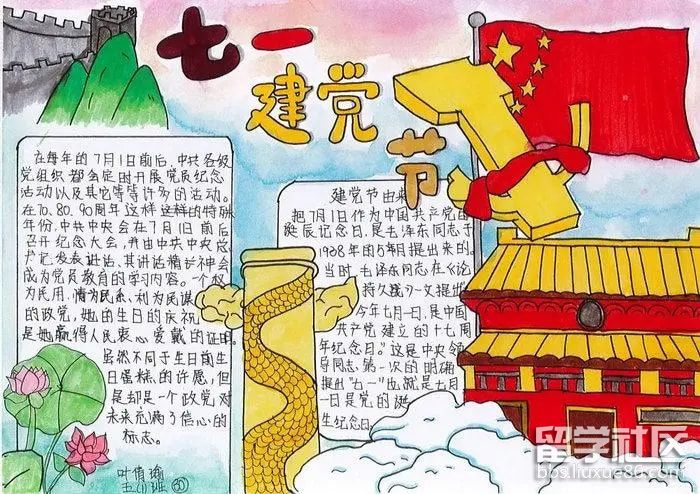 七一
建党
节
在每年的7月1日前后,中共各级
党组织都会定时开展党员纪念
活动以及其它等等许多的活动。
在70、80、90周年这样这样的特殊
年份,中共中央会在7月1日前后
召开纪念大会,并由中共中央总
书记发表讲话,其讲话精神会
成为党员教育的学习内容。一个权
为民用,情为民系,利为民谋
的政党,她的生日的庆祝,
是她赢得人民衷心爱戴的证明。
虽然不同于生日前生
日蛋糕的许愿,但
是却是一个政党对
未来充满了信心的
标志。
建党节由来
把7月1日作为中国共产党的
诞辰记念日,是毛泽东同志于
1938年的5月提出来的。
当时,毛泽东同志在《论
持久战》一文提出
今年七月一日,是中国
共产党建立的十七周
年纪念日。"这是中央领
导同志第一次的明确
提出"七一"也就是七月
一日是党的诞
生纪念日
叶倩瑜
五(1)班 30
留学社区
bbs.liuxue86.com